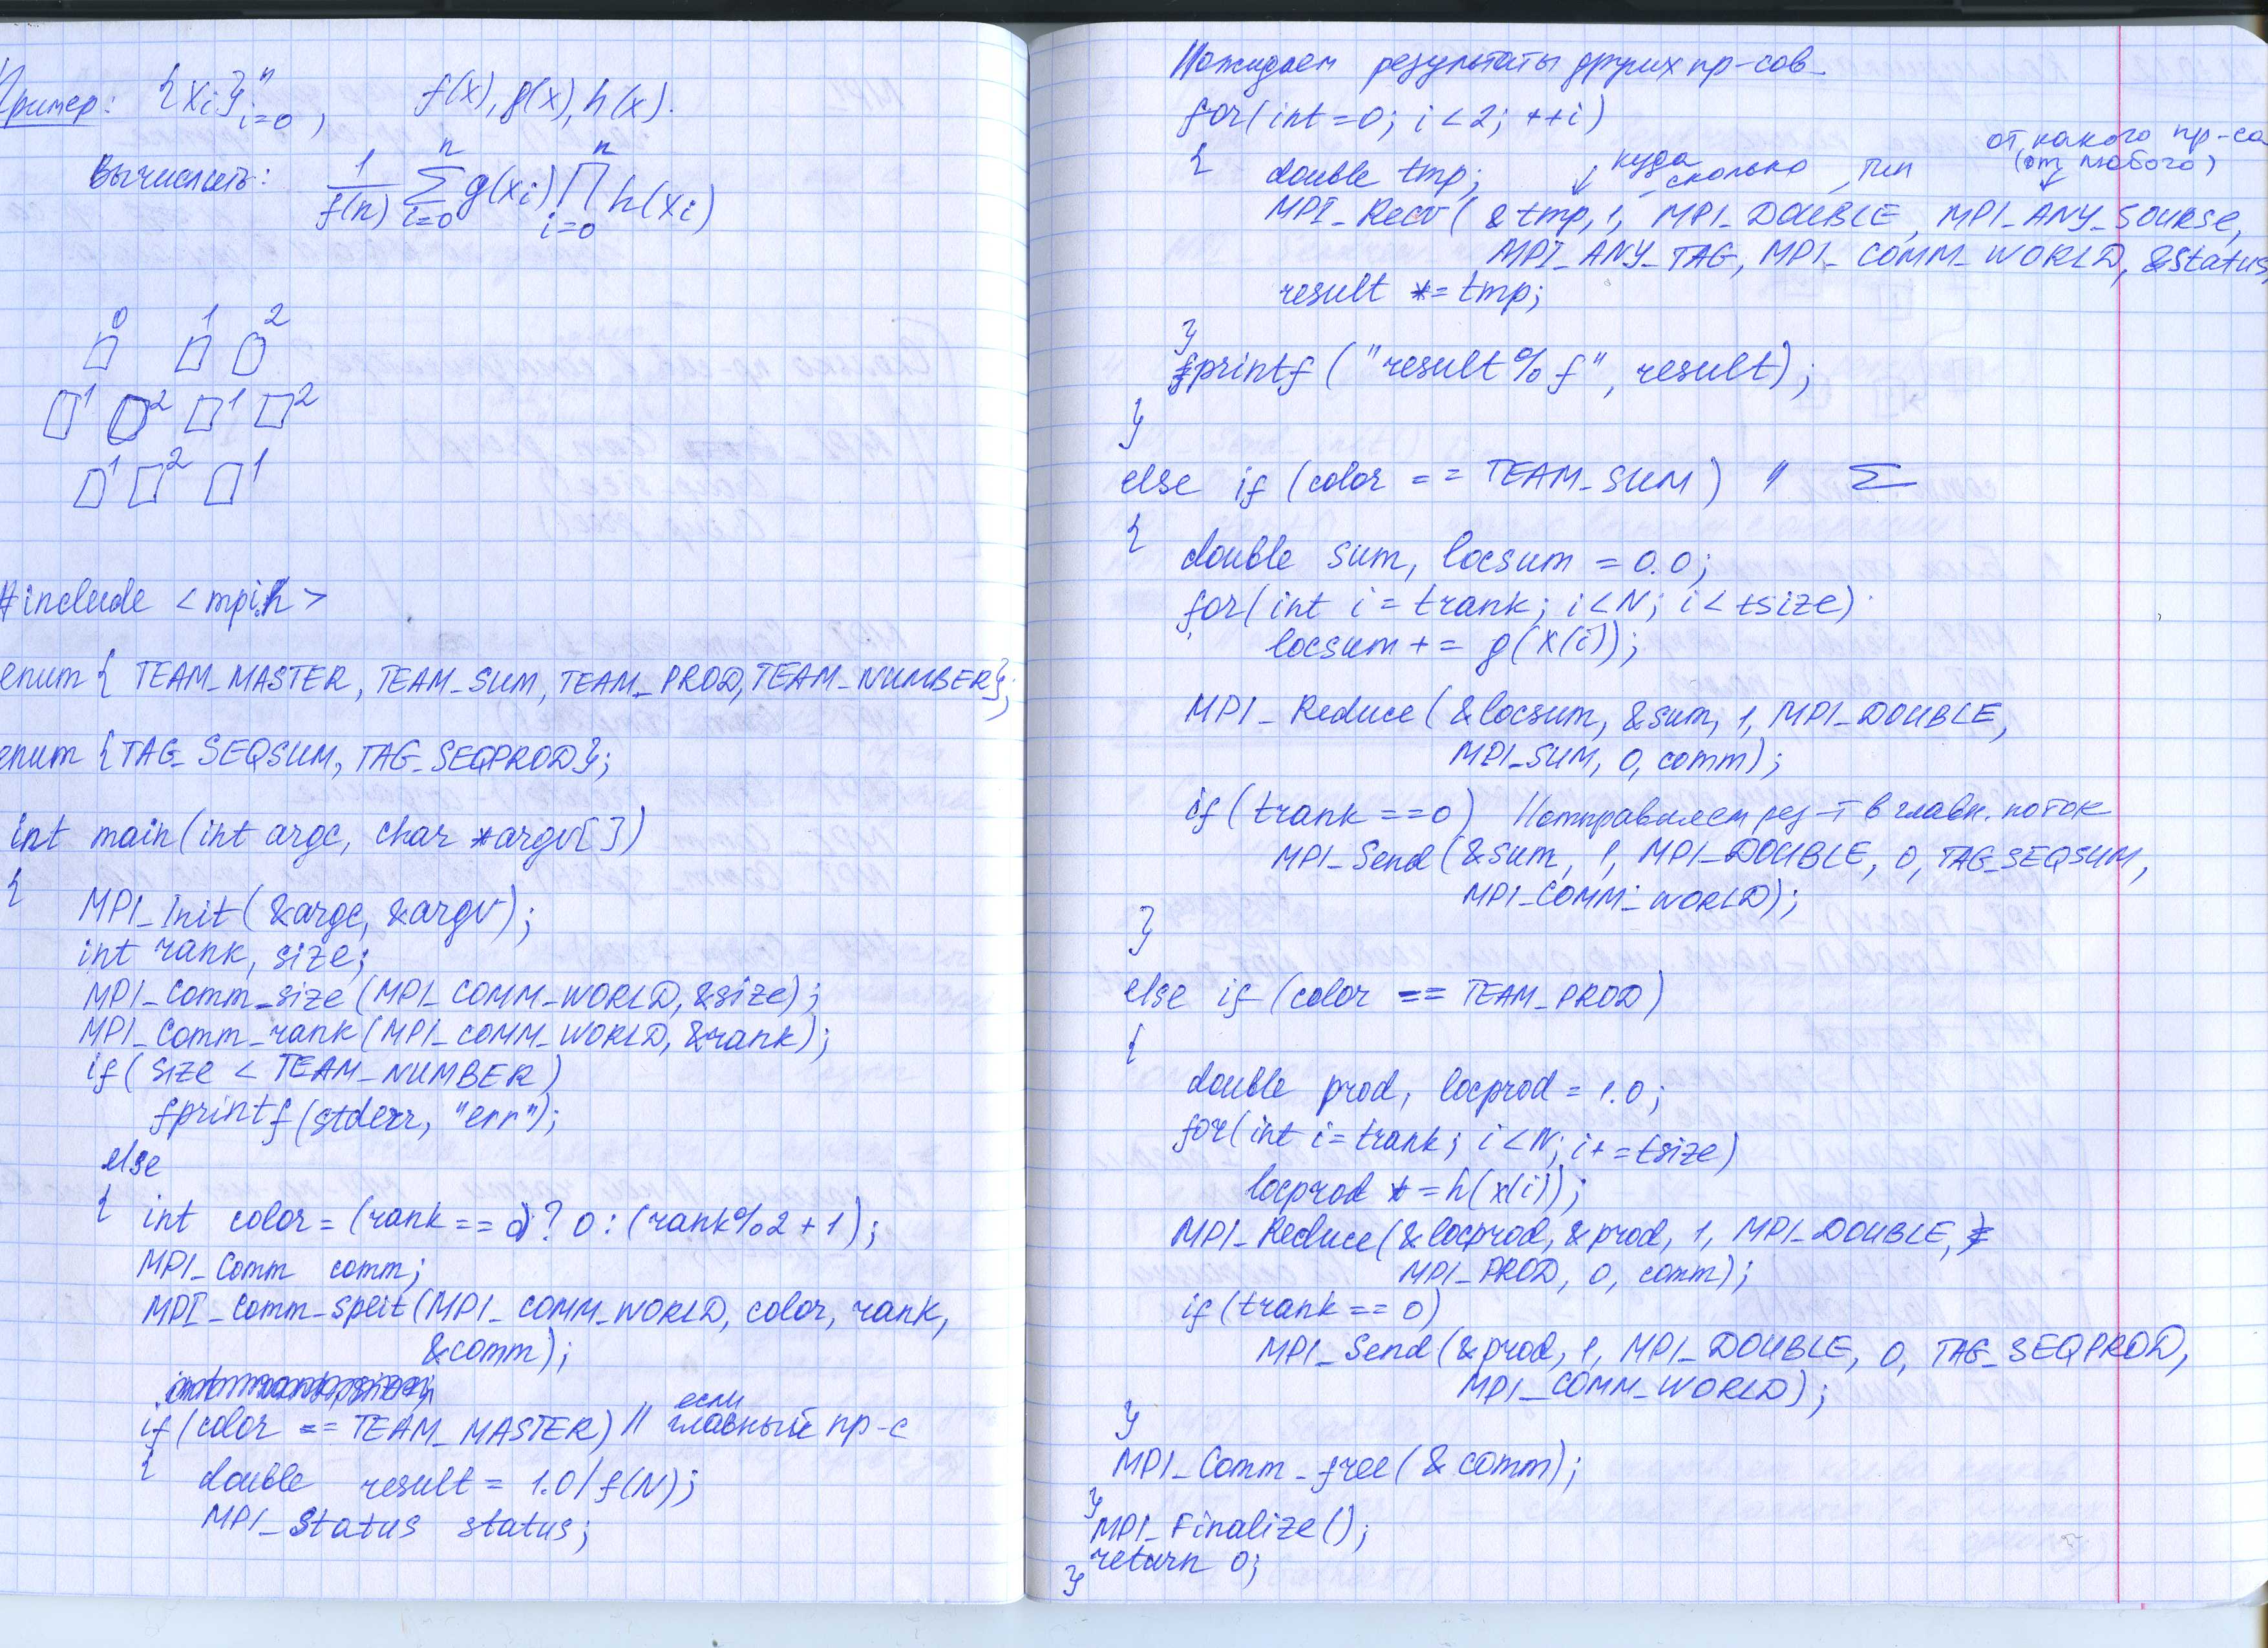 Пример: {xi}ⁿi=0, f(x), g(x), h(x).
Вычислить: 1/f(n) Σⁿi=0 g(xi) Πⁿi=0 h(xi)
0 1 2
1 2 1 2
1 2 1
#include <mpi.h>
enum { TEAM_MASTER, TEAM_SUM, TEAM_PROD, TEAM_NUMBER};
enum {TAG_SEQSUM, TAG_SEQPROD};
int main(int argc, char *argv[])
{
MPI_Init(&argc, &argv);
int rank, size;
MPI_Comm_size(MPI_COMM_WORLD, &size);
MPI_Comm_rank(MPI_COMM_WORLD, &rank);
if( size < TEAM_NUMBER)
fprintf(stderr, "err");
else
{ int color = (rank == 0)? 0 : (rank%2 + 1);
MPI_Comm comm;
MPI_Comm_split(MPI_COMM_WORLD, color, rank,
&comm);
if(color == TEAM_MASTER) // если главный пр-с
{ double result = 1.0/f(N);
MPI_Status status;
//ожидаем результаты других пр-сов
for(int=0; i<2; ++i)
от какого пр-са
{ куда сколько тип (от любого)
double tmp;
MPI_Recv( &tmp, 1, MPI_DOUBLE, MPI_ANY_SOURSE,
MPI_ANY_TAG, MPI_COMM_WORLD, &status
result *= tmp;
}
printf("result%f", result);
}
else if (color == TEAM_SUM) // Σ
{
double sum, locsum = 0.0;
for(int i = trank; i<N; i<tsize)
locsum += g(x(i));
MPI_Reduce(&locsum, &sum, 1, MPI_DOUBLE,
MPI_SUM, 0, comm);
if(trank==0) //отправляем рез-т в главн. поток
MPI_Send(&sum, 1, MPI_DOUBLE, 0, TAG_SEQSUM,
MPI_COMM_WORLD);
}
else if (color == TEAM_PROD)
{
double prod, locprod = 1.0;
for(int i=trank; i<N; i+=tsize)
locprod *=h(x(i));
MPI_Reduce(&locprod, &prod, 1, MPI_DOUBLE,
MPI_PROD, 0, comm);
if(trank==0)
MPI_Send(&prod, 1, MPI_DOUBLE, 0, TAG_SEQPROD,
MPI_COMM_WORLD);
}
MPI_Comm_free(&comm);
}
MPI_Finalize();
return 0;
}